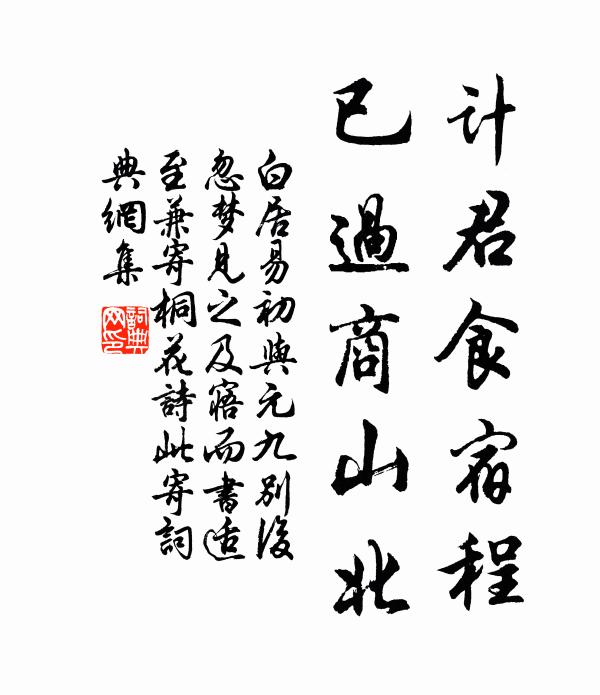 計君食宿程
已過商山北
白居易初與元九別後
忽梦見之及寤而書适
至兼寄桐花詩此寄詞
典網集
詞典
网印